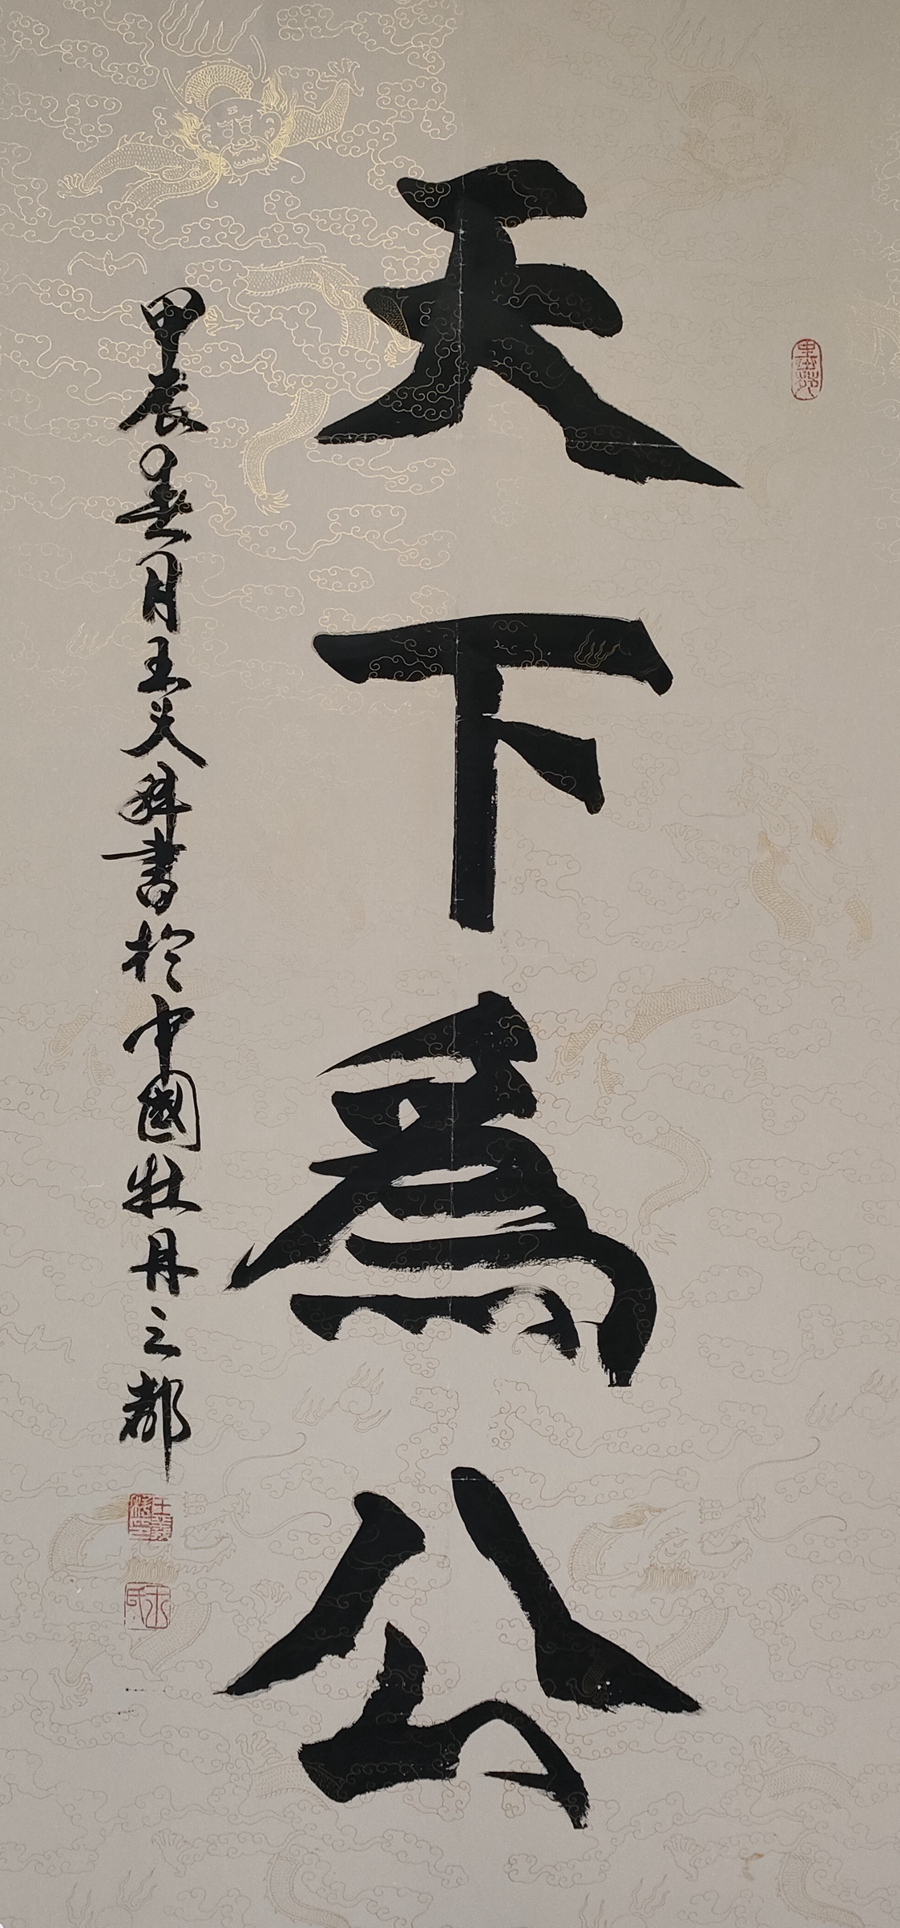 天下為公
甲辰春月王天科書於中國牡丹之都